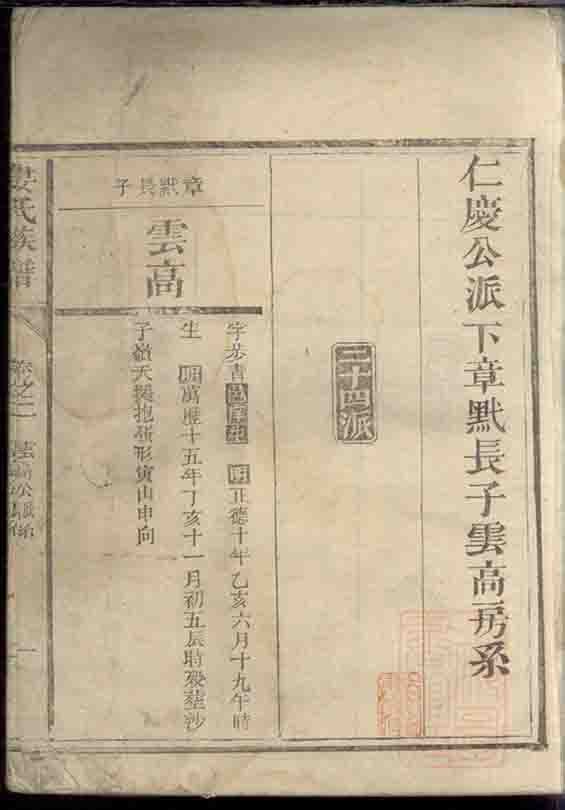 仁慶公派下章黙長子雲高房系
二十四派
章黙長子
雲高
字步青邑庠生 明正德十年乙亥六月十九午時
生 明萬歷十五年丁亥十一月初五辰時殁塟沙
子嶺天鵝抱蛋形寅山申向
氏族譜
卷之二